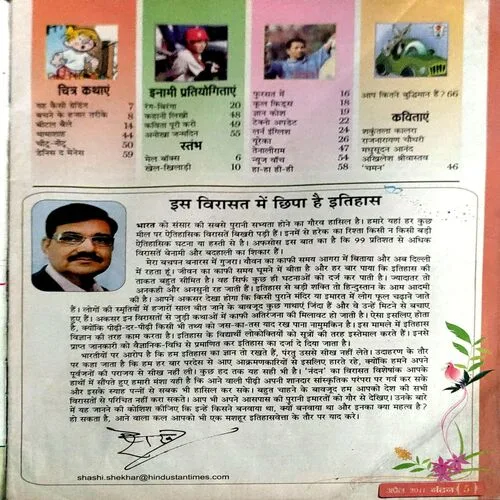 चित्र कथाएं
यह कैसी वेडिंग 7
बचने के हजार तरीके 8
बीटाल बैले 14
थामाशाह 44
चीटू-नीटू 50
डेनिस द मेनेस 59
इनामी प्रतियोगिताएं
रंग-बिरंगा 20
कहानी लिखी 48
कविता पूरी करो 49
अनोखा जन्मदिन 55
स्तंभ
मेल बॉक्स 6
खेल-खिलाड़ी 10
फुरसत में 16
कूल किड्स 18
ज्ञान कोश 19
टेक्नो अपडेट 22
लर्न इंग्लिश 24
यूरेका 26
तेनालीराम 47
न्यूज वॉच 54
हा-हा ही-ही 58
आप कितने बुद्धिमान हैं? 66
कविताएं
शकुंतला कालरा
राजनारायण चौधरी
मधुसूदन आनंद
अखिलेश श्रीवास्तव
'चमन' 46
इस विरासत में छिपा है इतिहास
भारत को संसार की सबसे पुरानी सभ्यता होने का गौरव हासिल है। हमारे यहां हर कुछ
मील पर ऐतिहासिक विरासतें बिखरी पड़ी हैं। इनमें से हरेक का रिश्ता किसी न किसी बड़ी
ऐतिहासिक घटना या हस्ती से है। अफसोस इस बात का है कि 99 प्रतिशत से अधिक
विरासतें बेनामी और बदहाली का शिकार हैं।
मेरा बचपन बनारस में गुजरा। जीवन का काफी समय आगरा में बिताया और अब दिल्ली
में रहता हूं। जीवन का काफी समय घूमने में बीता है और हर बार पाया कि इतिहास की
ताकत बहुत सीमित है। वह सिर्फ कुछ ही घटनाओं को दर्ज कर पाती है। ज्यादातर तो
अनकही और अनसुनी रह जाती हैं। इतिहास से बड़ी शक्ति तो हिन्दुस्तान के आम आदमी
की है। आपने अकसर देखा होगा कि किसी पुराने मंदिर या इमारत में लोग फूल चढ़ाने जाते
हैं। लोगों की स्मृतियों में हजारों साल बीत जाने के बावजूद कुछ गाथाएं जिंदा हैं और वे उन्हें मिटने से बचाए
हुए हैं। अकसर इन विरासतों से जुड़ी कथाओं में काफी अतिरंजना की मिलावट हो जाती है। ऐसा इसलिए होता
है, क्योंकि पीढ़ी-दर-पीढ़ी किसी भी तथ्य को जस-का-तस याद रख पाना नामुमकिन है। इस मामले में इतिहास
विज्ञान की तरह काम करता है। इतिहास के विद्यार्थी लोकोक्तियों को सूत्रों की तरह इस्तेमाल करते हैं। इनसे
प्राप्त जानकारी को वैज्ञानिक-विधि से प्रमाणित कर इतिहास का दर्जा दे दिया जाता है।
भारतीयों पर आरोप है कि हम इतिहास का ज्ञान तो रखते हैं, परंतु उससे सीख नहीं लेते। उदाहरण के तौर
पर कहा जाता है कि हम हर बार परदेस से आए आक्रमणकारियों से इसलिए हारते रहे, क्योंकि हमने अपने
पूर्वजनों की पराजय से सीख नहीं ली। कुछ हद तक यह सही भी है। 'नंदन' का विरासत विशेषांक आपके
हाथों में सौंपते हुए हमारी मंशा यही है कि आने वाली पीढ़ी अपनी शानदार सांस्कृतिक परंपरा पर गर्व कर सके
और इसके स्याह पन्नों से सबक भी हासिल कर सके। बहुत चाहने के बावजूद हम आपको देश की सभी
विरासतों से परिचित नहीं करा सकते। आप भी अपने आसपास की पुरानी इमारतों को गौर से देखिए। उनके बारे
में यह जानने की कोशिश कीजिए कि इन्हें किसने बनवाया था, क्यों बनवाया था और इनका क्या महत्व है?
हो सकता है, आने वाला कल आपको भी एक मशहूर इतिहासवेत्ता के तौर पर याद करे।
shashi.shekhar@hindustantimes.com
अप्रैल 2011 नंदन 5